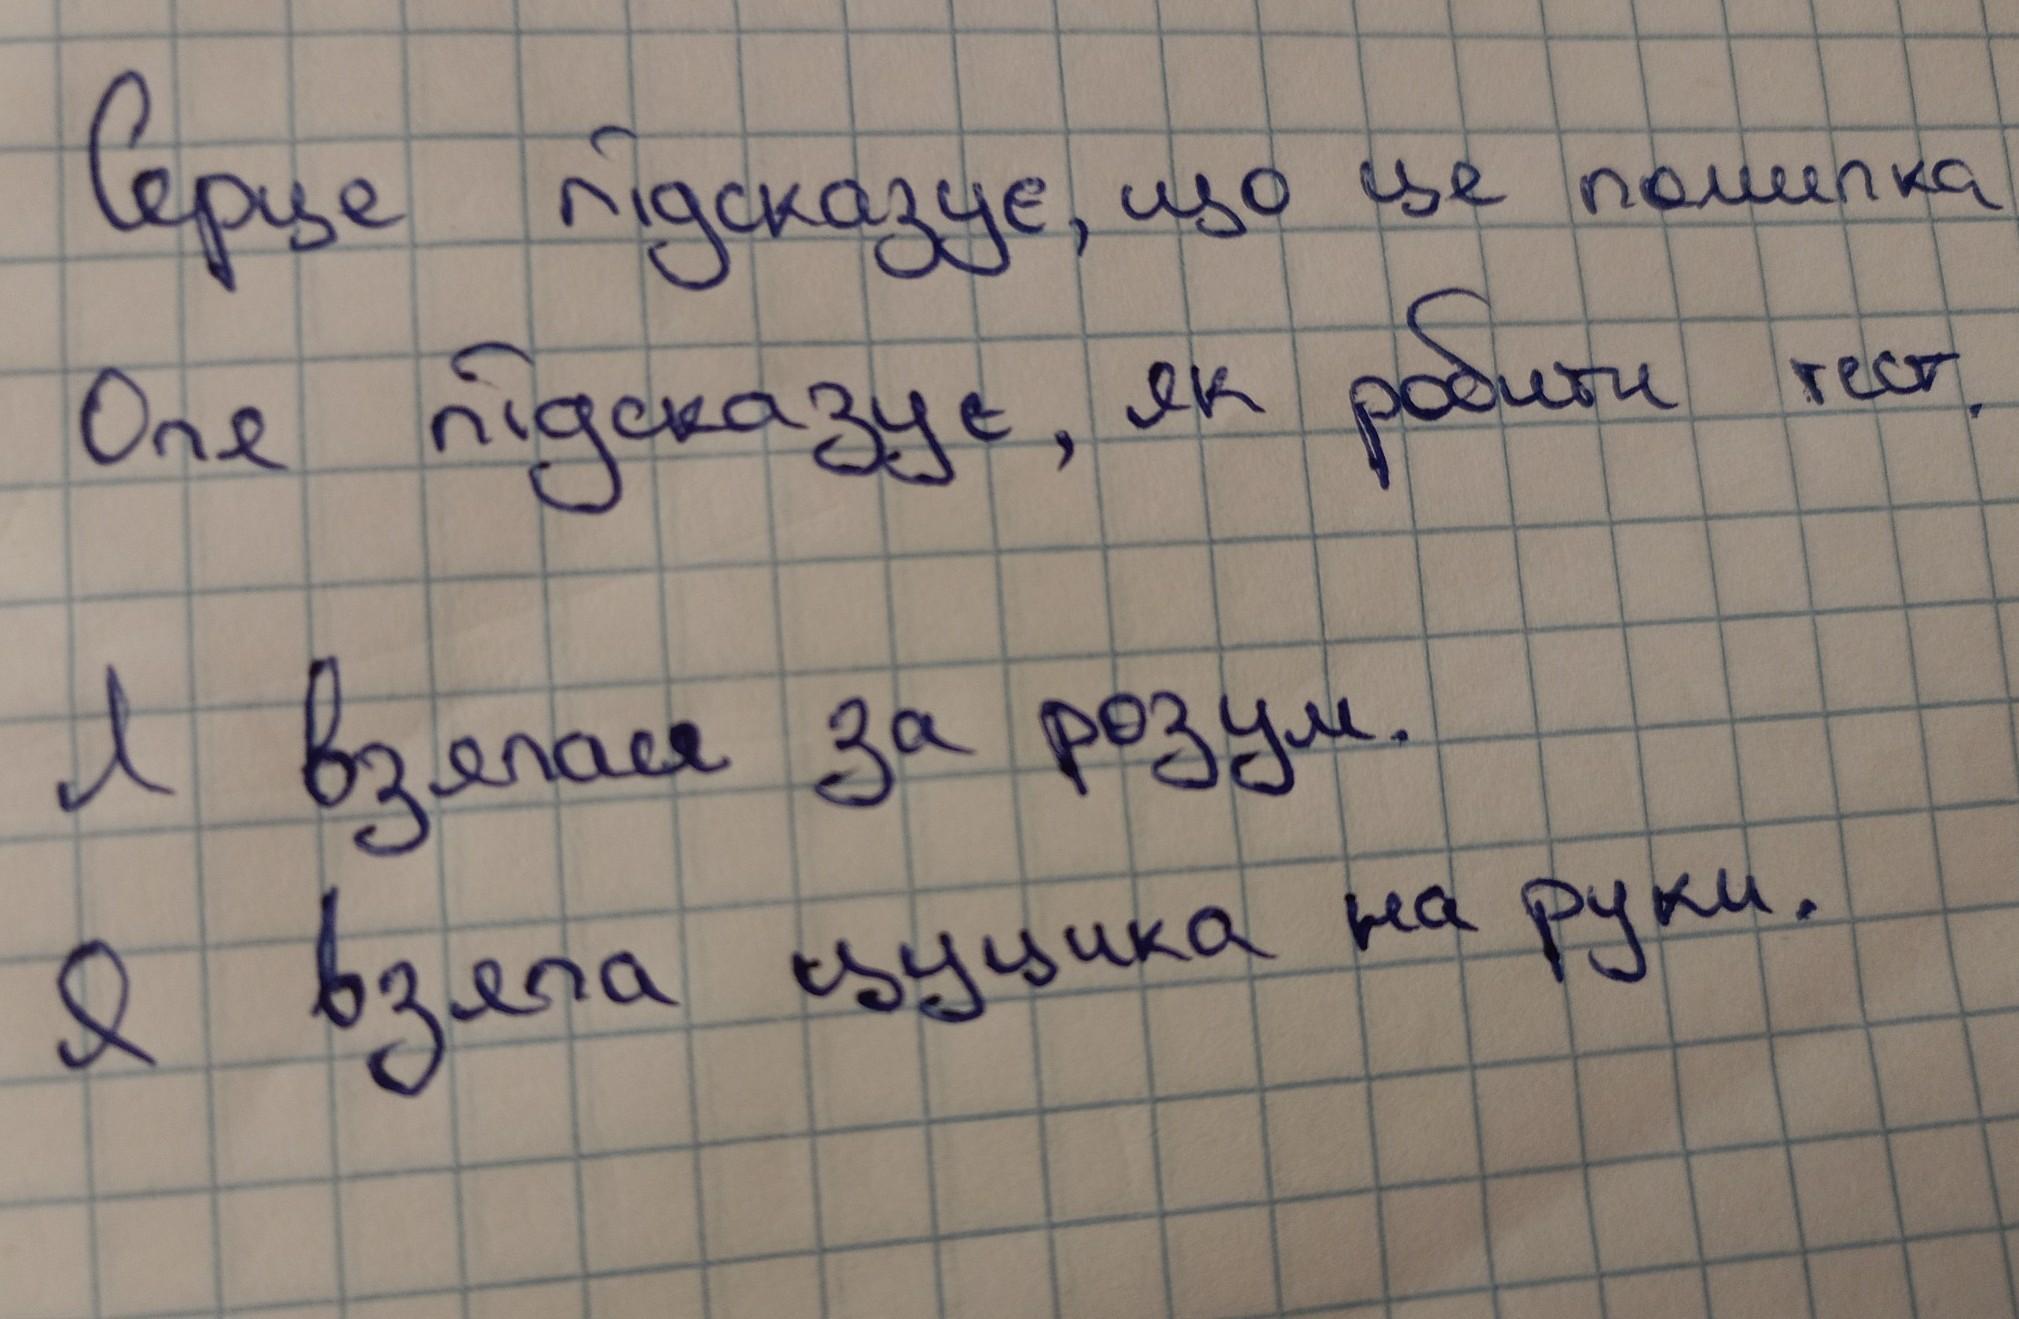 Серце підсказує, що це помилка
Оля підсказує, як робити тест.
Я взялася за розум.
Я взяла цуцика на руки.